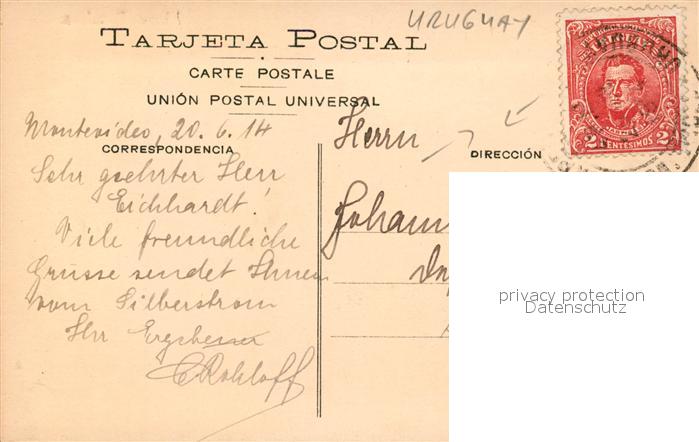 URUGUAY
TARJETA POSTAL
CARTE POSTALE
UNIÓN POSTAL UNIVERSAL
Montevideo, 20.6.14
CORRESPONDENCIA
Sehr geehrter Herr
Eichhardt!
Viele freundliche
Grüsse sendet Ihnen
vom Silberstrom
Ihr
Herrn
DIRECCIÓN
Johann
2 CENTÉSIMOS 2
privacy protection
Datenschutz